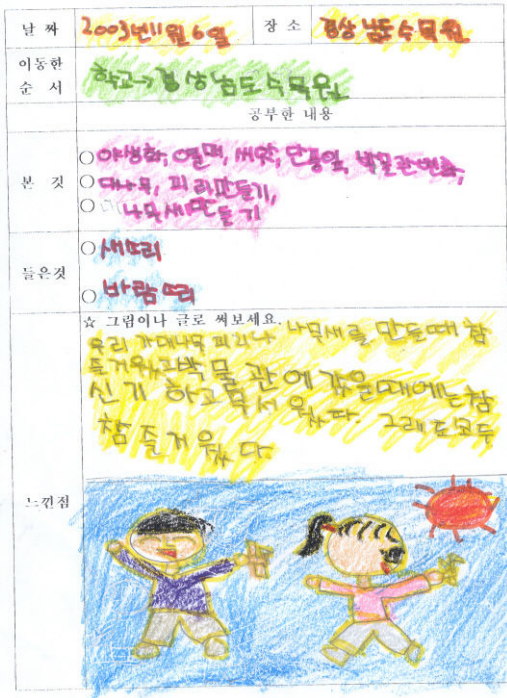 날 짜 2003년 11월 6일 장 소 경상남도수목원
이동한 순 서 학교→경상남도수목원
공부한 내용
본 것
○ 야생화, 열매, 씨앗, 단풍잎, 박물관변화,
○ 대나무, 피리만들기,
○ 나무새만들기
들은것
○ 새소리
○ 바람소리
느낀점
☆ 그림이나 글로 써보세요.
우리가 대나무 피리나 나무새를 만들때 참
즐거웠고 박물관에 갔을때에는 참
신기하고 무서웠다. 그래도 모두
참 즐거웠다.